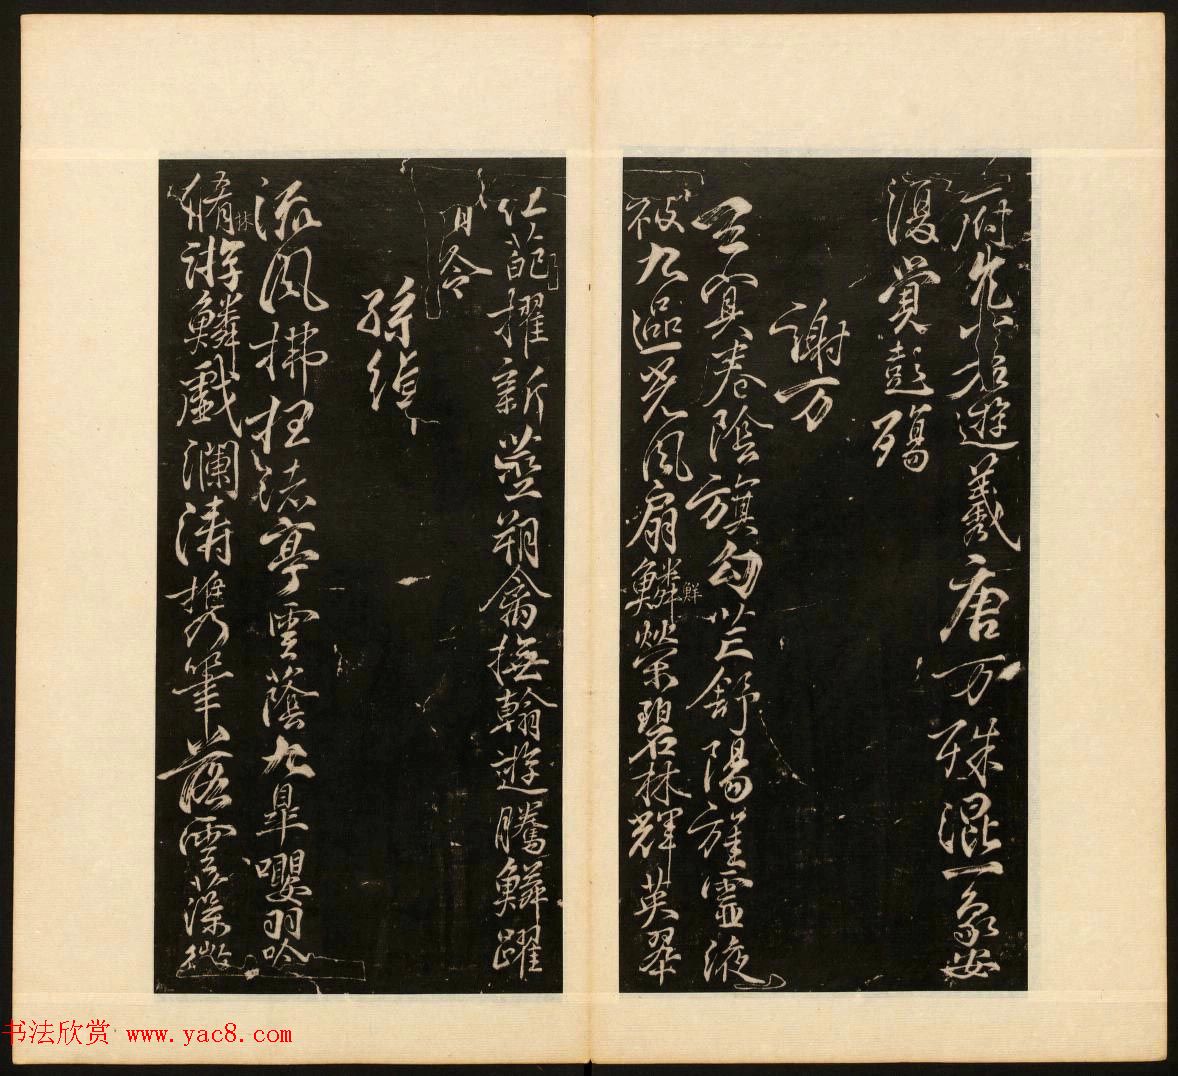 府兀若遊羲唐万殊混一象安
復覺彭殤
謝万
玄冥卷陰旗勾芒舒陽旌靈液
被九區光風扇鱗榮碧林輝英翠
鮮
紅葩擢新莖翔禽撫翰遊騰鱗躍
清泠
孫綽
流風拂枉渚亭雲蔭九皐嚶羽吟
脩游鱗戲瀾濤攜筆落雲藻微
林
书法欣赏 www.yac8.com